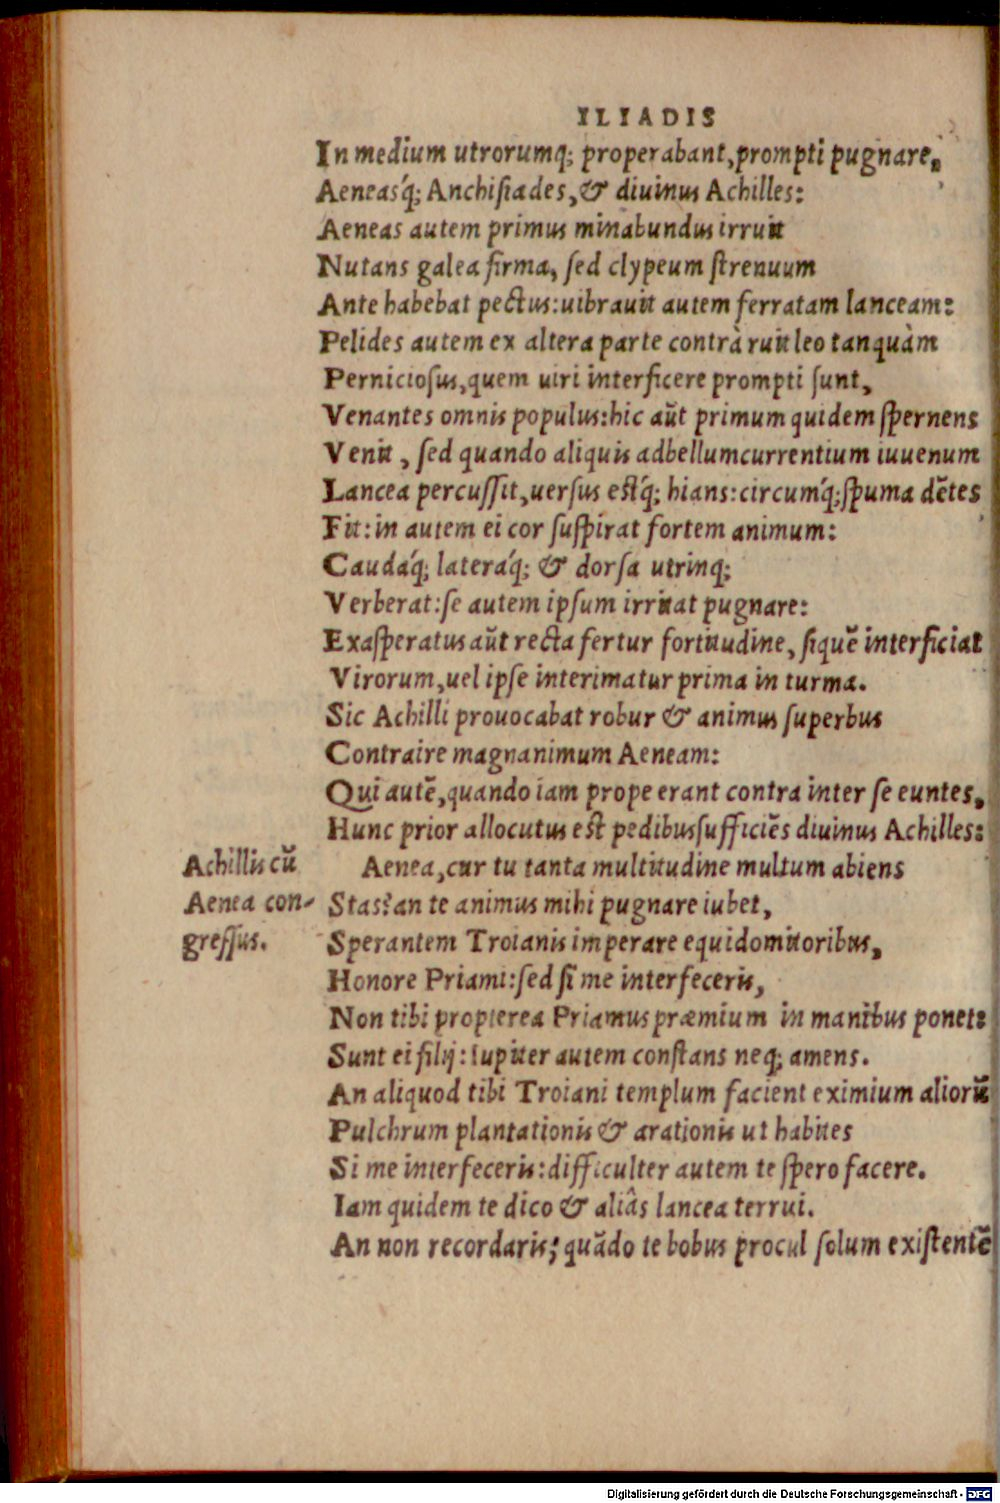 ILIADIS
In medium utrorumq; properabant, prompti pugnare,
Aeneasq́; Anchisiades, & diuinus Achilles:
Aeneas autem primus minabundus irruit
Nutans galea firma, sed clypeum strenuum
Ante habebat pectus: uibrauit autem ferratam lanceam:
Pelides autem ex altera parte contrà ruit leo tanquàm
Perniciosus, quem uiri interficere prompti sunt,
Venantes omnis populus: hic aūt primum quidem spernens
Venit, sed quando aliquis ad bellum currentium iuuenum
Lancea percussit, uersus estq́; hians: circumq́; spuma dētes
Fit: in autem ei cor suspirat fortem animum:
Caudaq́; lateraq́; & dorsa utrinq;
Verberat: se autem ipsum irritat pugnare:
Exasperatus aūt recta fertur fortitudine, si quē interficiat
Virorum, uel ipse interimatur prima in turma.
Sic Achilli prouocabat robur & animus superbus
Contraire magnanimum Aeneam:
Qui autē, quando iam prope erant contra inter se euntes,
Hunc prior allocutus est pedibus sufficiēs diuinus Achilles:
Achillis cū
Aenea con-
gressus.
Aenea, cur tu tanta multitudine multum abiens
Stas? an te animus mihi pugnare iubet,
Sperantem Troianis imperare equidomitoribus,
Honore Priami: sed si me interfeceris,
Non tibi propterea Priamus præmium in manibus ponet:
Sunt ei filij: Iupiter autem constans neq; amens.
An aliquod tibi Troiani templum facient eximium aliorū
Pulchrum plantationis & arationis ut habites
Si me interfeceris: difficulter autem te spero facere.
Iam quidem te dico & aliâs lancea terrui.
An non recordaris; quādo te bobus procul solum existentē
Digitalisierung gefördert durch die Deutsche Forschungsgemeinschaft - DFG